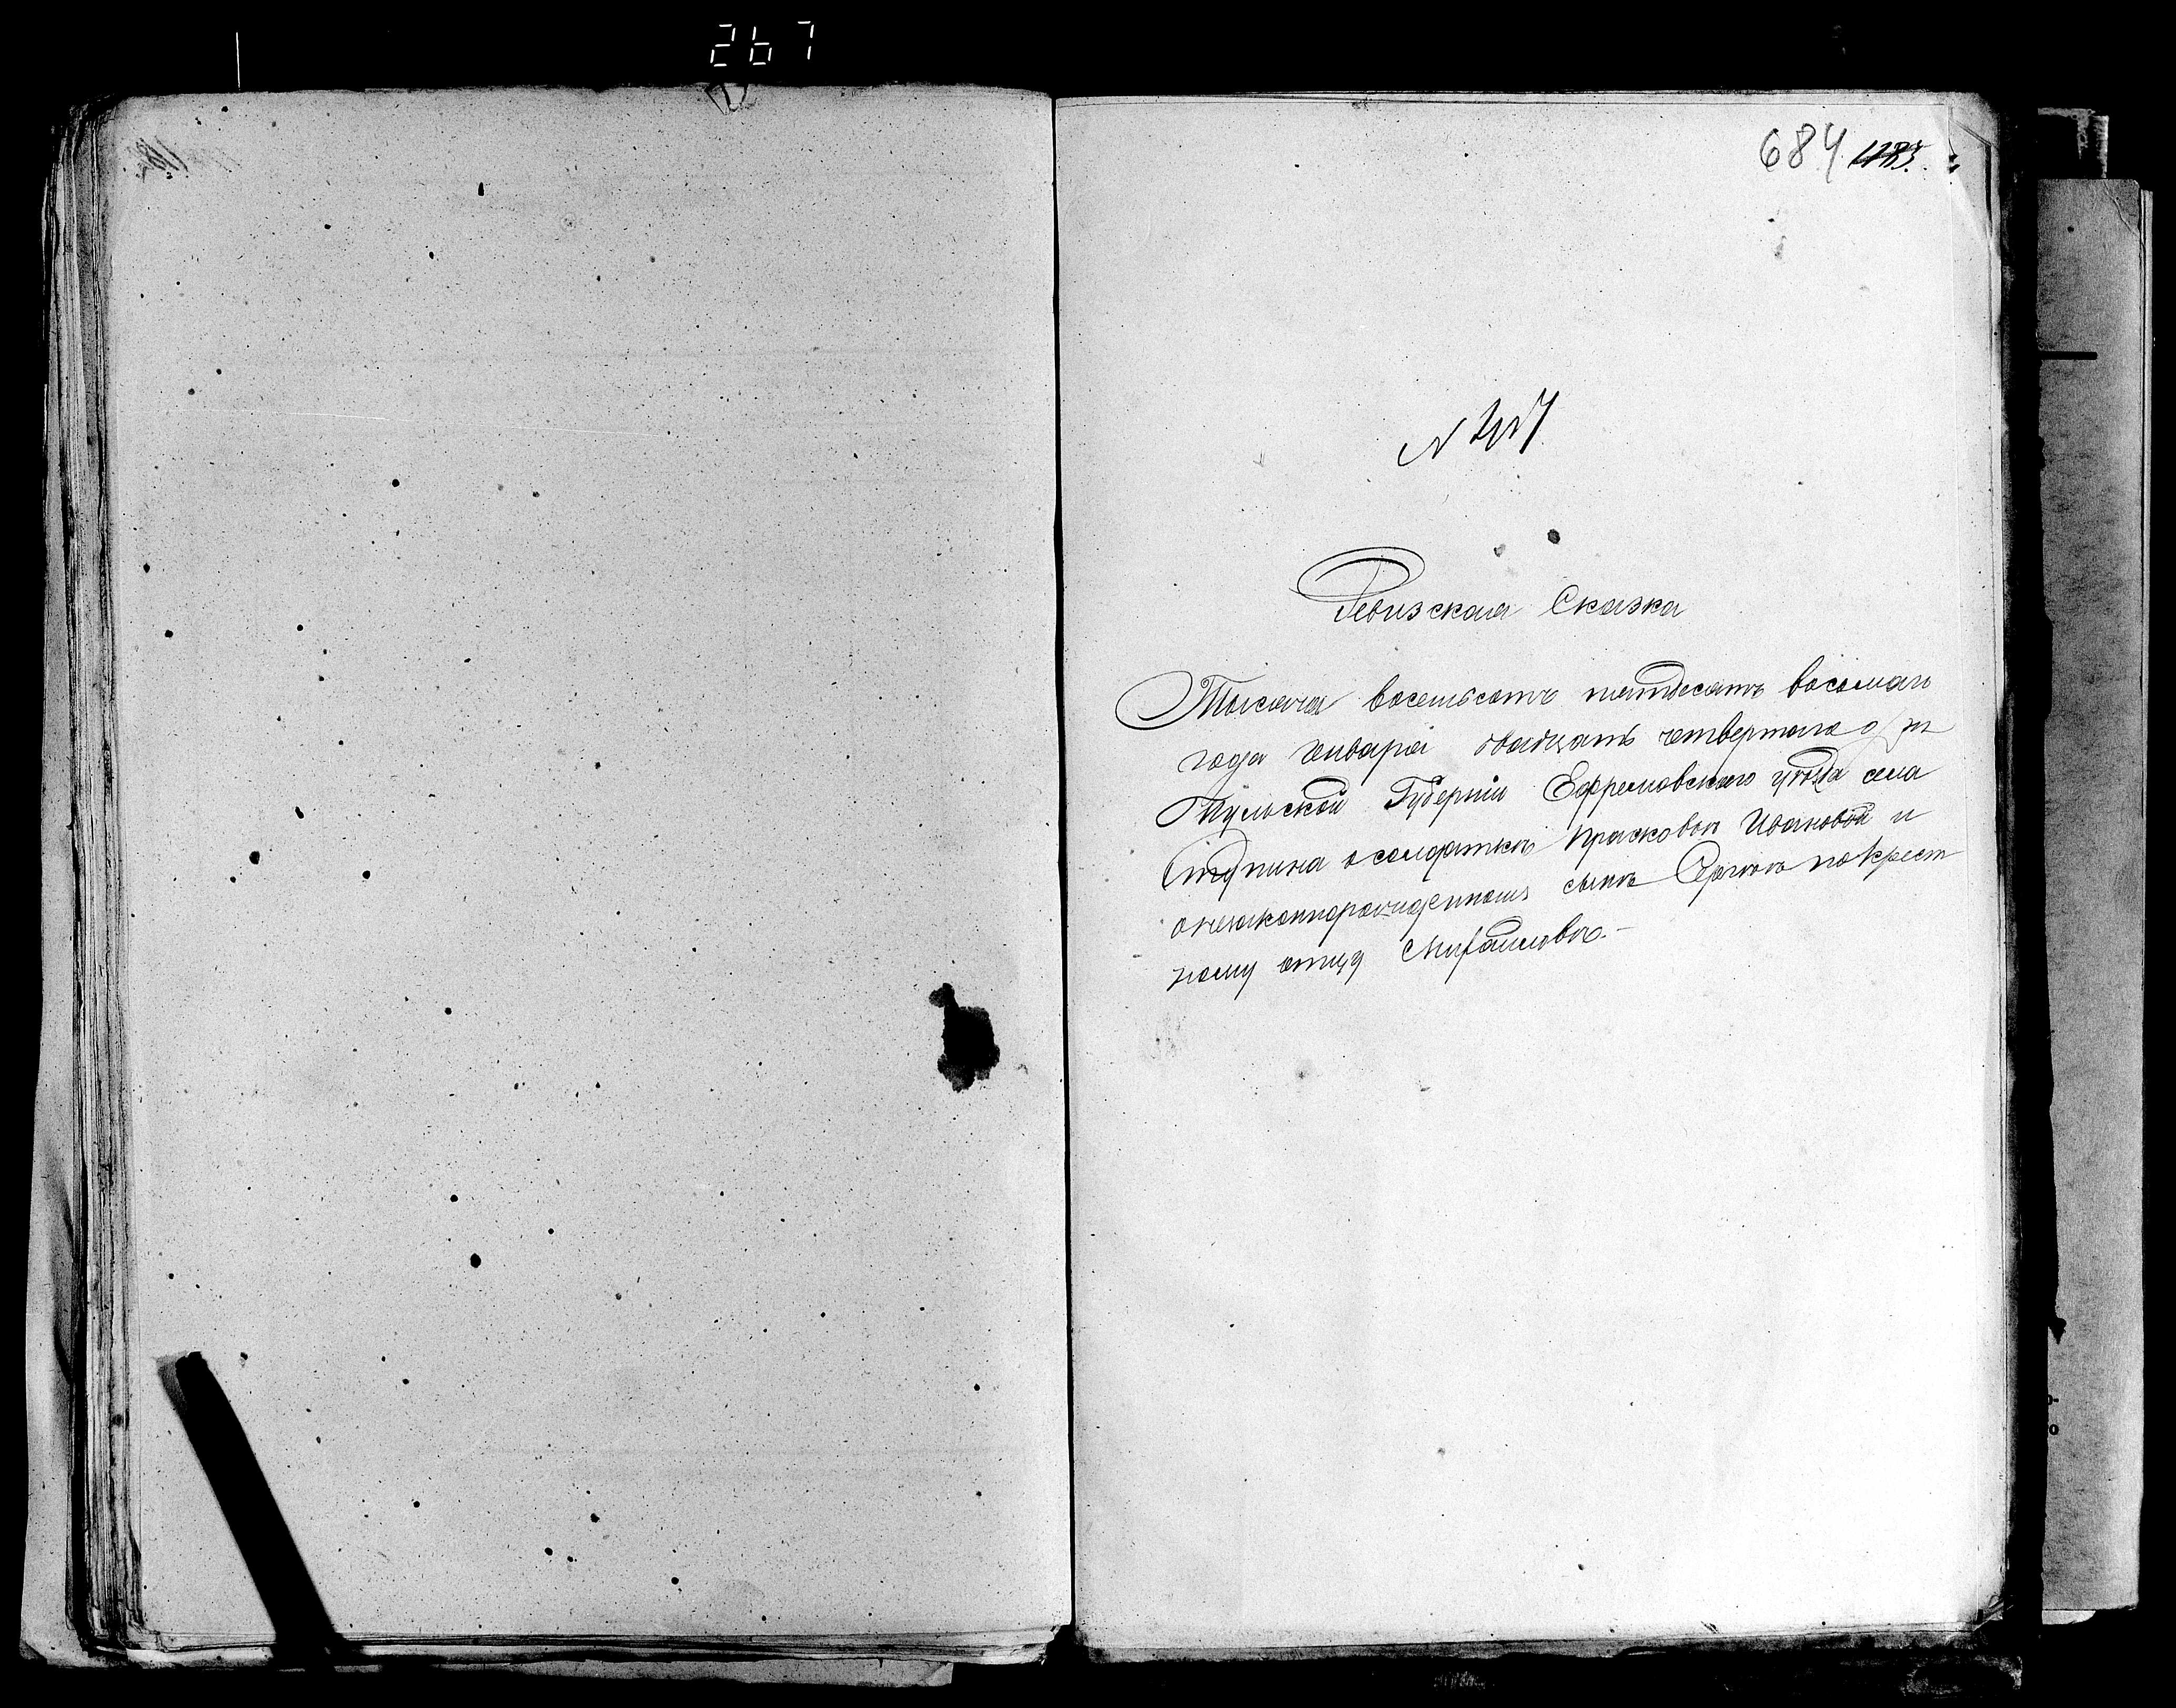 267
684 1183.
N 217
Ревизская Сказка
Тысяча восемьсотъ пятдесятъ восьмаго
года Генваря двадцать четвертаго дня
Тульской Губерніи Ефремовскаго уѣзда села
Ступина о солдаткѣ Прасковьѣ Ивановой и
о незаконнорожденномъ сынѣ Сергѣѣ по крест
ному отцу Михайловѣ.-